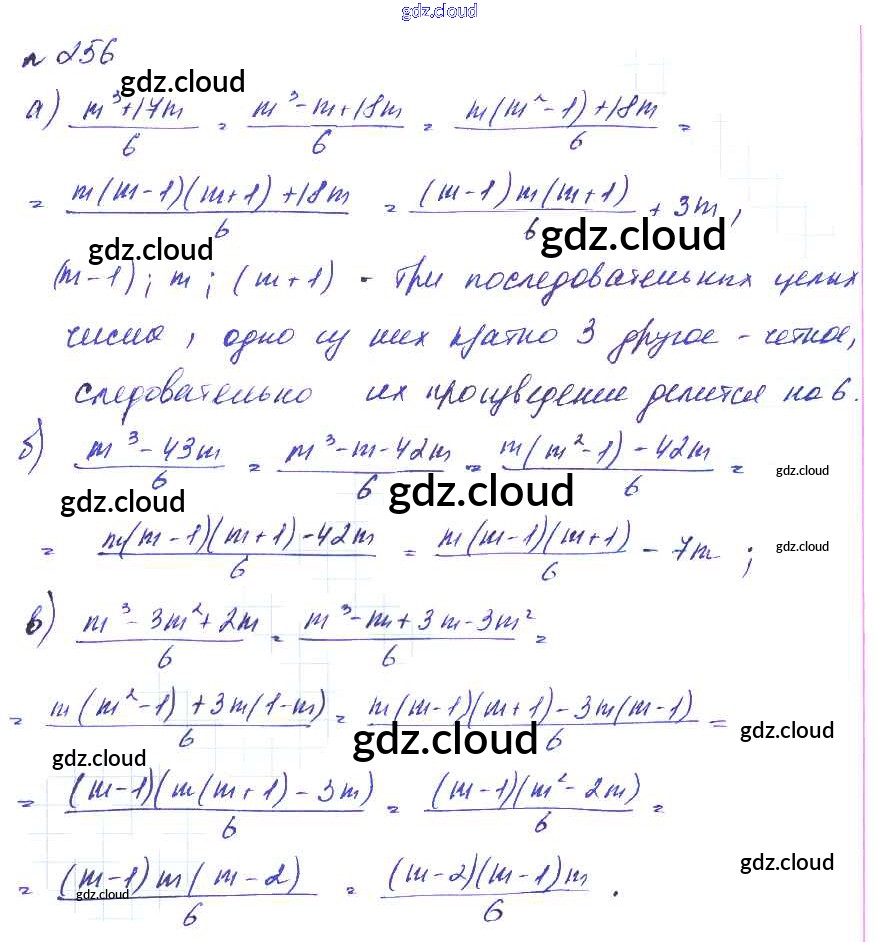 gdz.cloud
n 256
gdz.cloud
а) (m³+17m)/6 = (m³-m+18m)/6 = (m(m²-1)+18m)/6 =
= (m(m-1)(m+1)+18m)/6 = ((m-1)m(m+1))/6 + 3m,
gdz.cloud gdz.cloud
(m-1); m; (m+1) - три последовательных целых
числа, одно из них кратно 3 другое - четное,
следовательно их произведение делится на 6.
б) (m³-43m)/6 = (m³-m-42m)/6 = (m(m²-1)-42m)/6 =
gdz.cloud gdz.cloud gdz.cloud
= (m(m-1)(m+1)-42m)/6 = (m(m-1)(m+1))/6 - 7m ;
gdz.cloud
в) (m³-3m²+2m)/6 = (m³-m+3m-3m²)/6 =
= (m(m²-1)+3m(1-m))/6 = (m(m-1)(m+1)-3m(m-1))/6 =
gdz.cloud gdz.cloud gdz.cloud
= ((m-1)(m(m+1)-3m)/6 = ((m-1)(m²-2m))/6 =
= ((m-1)m(m-2))/6 = ((m-2)(m-1)m)/6 .
gdz.cloud gdz.cloud